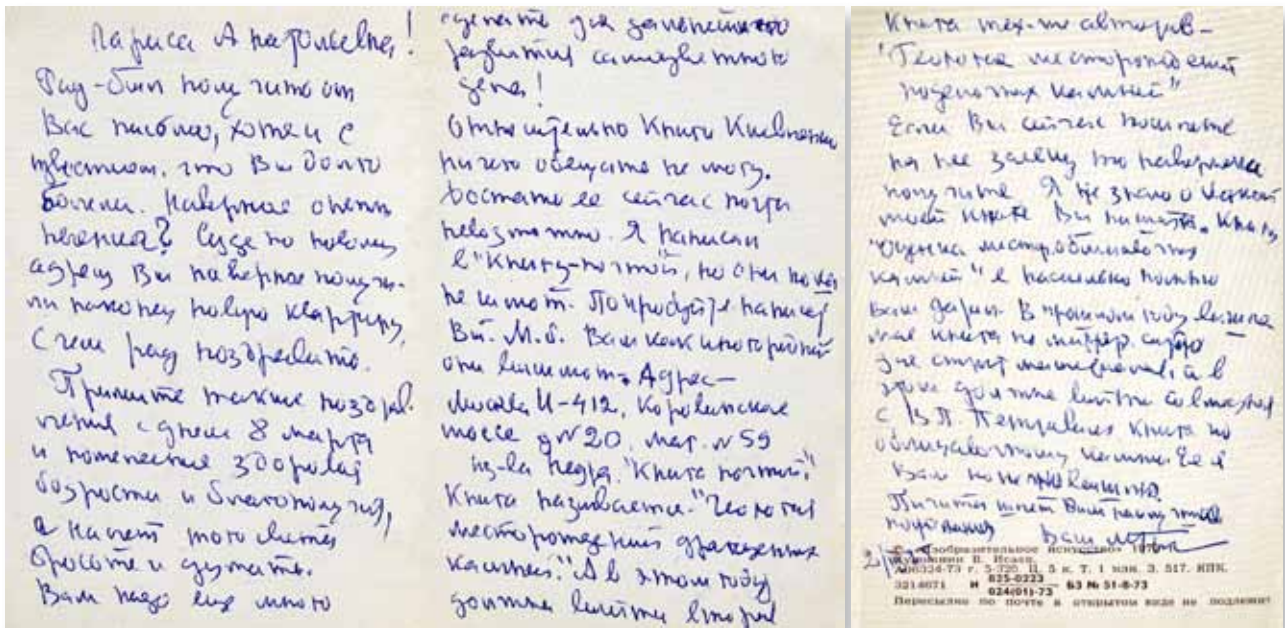 Лариса Анатольевна!
Рад был получить от
Вас письмо, хотя и с
известием, что Вы долго
болели. Наверное опять
печенка? Судя по новому
адресу Вы наверное получи-
ли наконец новую квартиру,
с чем рад поздравить.
Примите также поздрав-
ления с днем 8 марта
и пожелания здоровья
бодрости и благополучия,
а насчет того света
бросьте и думать.
Вам надо еще много
сделать для дальнейшего
развития самоцветного
дела!
Относительно Книги Киевленко
ничего обещать не могу.
Достать ее сейчас почти
невозможно. Я написал
в "Книгу-почтой", но они пока
не шлют. Попробуйте написать
Вы. М.б. Вам как иногородней
они вышлют. Адрес-
Москва И-412, Коровинское
шоссе д №20, маг. №59
из-ва Недра. "Книга почтой"
Книга называется "Геология
месторождений драгоценных
камней". А в этом году
должна выйти вторая
Книга тех-же авторов-
"Геология месторождений
поделочных камней"
Если Вы сейчас пошлете
на нее заявку то наверняка
получите. Я не знаю о какой
моей книге Вы пишете. Книгу
"Оценка местр. облицовочных
камней" я насколько помню
Вам дарил. В прошлом году вышла
моя книга по
для строит материалов, а в
этом должна выйти совместная
с В.П. Петровым книга по
облицовочному камню. Ее я
Вам непременно вышлю.
шлет Вам наилучшие
пожелания Ваш
2/
«Изобразительное искусство»
Художник В. Исаев.
А06324-73 г. 5-720. Ц. 5 к. Т. 1 млн. З. 517. КПК.
3214671 И 025-0223 БЗ № 51-8-73
024(01)-73
Пересылке по почте в открытом виде не подлежит